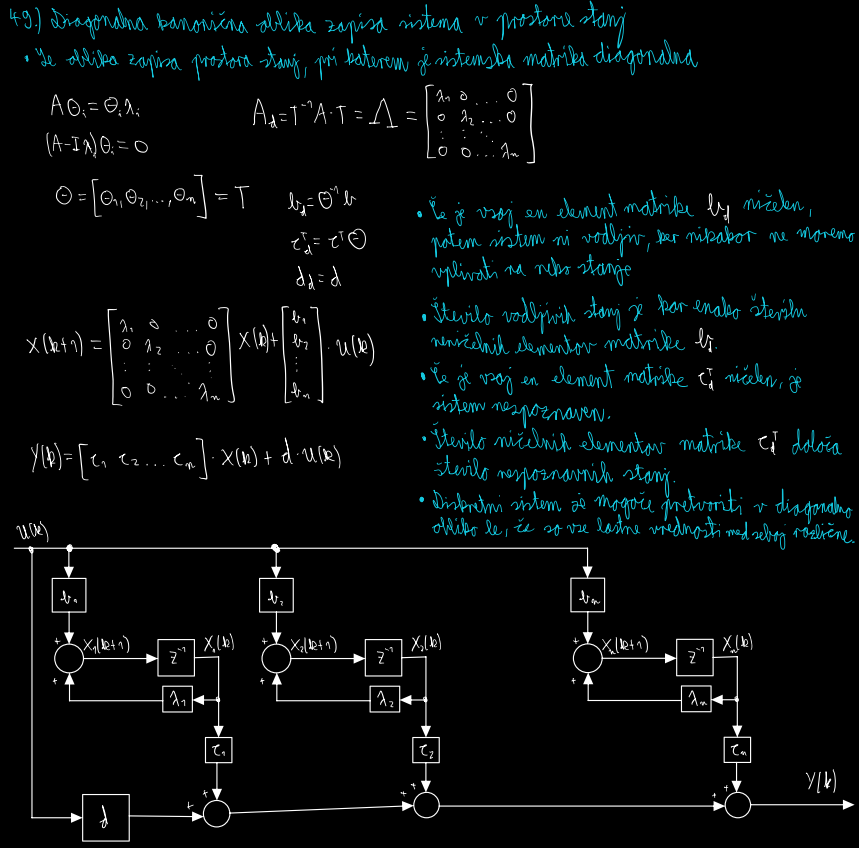 49.) Diagonalna kanonična oblika zapisa sistema v prostoru stanj
• Je oblika zapisa prostora stanj, pri katerem je sistemska matrika diagonalna
AΘᵢ=Θᵢλᵢ
(A-Iλᵢ)Θᵢ=0
A_d=T⁻¹A·T=Λ=[λ₁ 0 ... 0
0 λ₂ ... 0
⋮ ⋮ ⋱ ⋮
0 0 ... λₙ]
Θ=[Θ₁,Θ₂,...,Θₙ]=T
b_d=Θ⁻¹b
c_dᵀ=cᵀΘ
d_d=d
• Če je vsaj en element matrike b_d ničelen,
potem sistem ni vodljiv, ker nikakor ne moremo
vplivati na neko stanje
• Število vodljivih stanj je kar enako številu
neničelnih elementov matrike b_d.
• Če je vsaj en element matrike c_dᵀ ničelen, je
sistem nespoznaven.
• Število ničelnih elementov matrike c_dᵀ določa
število nespoznavnih stanj.
• Diskretni sistem je mogoče pretvoriti v diagonalno
obliko le, če so vse lastne vrednosti med seboj različne.
x(k+1)=[λ₁ 0 ... 0
0 λ₂ ... 0
⋮ ⋮ ⋱ ⋮
0 0 ... λₙ] x(k)+[b₁
b₂
⋮
bₙ]·u(k)
y(k)=[c₁ c₂ ... cₙ]·x(k)+d·u(k)
u(k)
b₁ b₂ bₙ
+ x₁(k+1) z⁻¹ x₁(k) + x₂(k+1) z⁻¹ x₂(k) + xₙ(k+1) z⁻¹ xₙ(k)
+ λ₁ + λ₂ + λₙ
c₁ c₂ cₙ
y(k)
d + + + + + +